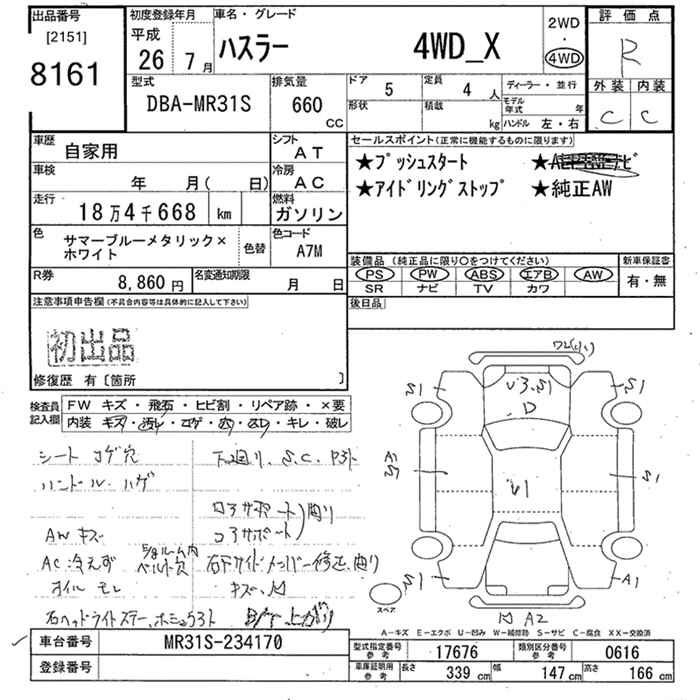 出品番号 初度登録年月 車名・グレード
[2151] 8161
平成 26 7月 ハスラー 4WD_X
2WD ・ 4WD
評価点 R
外装 内装
C C
型式 DBA-MR31S
排気量 660 CC
ドア 5 定員 4 人
形状 積載 kg
ディーラー・並行
モデル年式 年
ハンドル 左・右
車歴 自家用
シフト AT
車検 年 月( 日)
冷房 AC
走行 18万4千668 km
燃料 ガソリン
色 サマーブルーメタリック×ホワイト 色替
色コード A7M
R券 8,860円 名変通知期限 月 日
セールスポイント(正常に機能するものに限ります)
★プッシュスタート
★アイドリングストップ ★純正AW
装備品(純正品に限り○をつけてください) 新車保証書
PS PW ABS エアB AW 有・無
SR ナビ TV カワ
後日品
注意事項申告欄(不具合内容等は具体的に記入して下さい)
初出品
修復歴 有〔箇所 〕
検査員記入欄
FW キズ・飛石・ヒビ割・リペア跡・×要
内装 キズ・汚レ・コゲ・穴・スレ・キレ・破レ
シート コゲ穴 下廻り、S.C.
ハンドル ハゲ
コアサポート
AW キズ コアサポート 曲り
AC 冷えず
オイル モレ
S1 S1
V3.S1
D
A1 S1
V1
S1
S1 A1
A2
スペア
A-キズ E-エクボ U-凹み W-補修跡 S-サビ C-腐食 XX-交換済
車台番号 MR31S-234170
登録番号
型式指定番号 参考 17676 類別区分番号 参考 0616
車庫証明用 参考 長さ 339 cm 幅 147 cm 高さ 166 cm